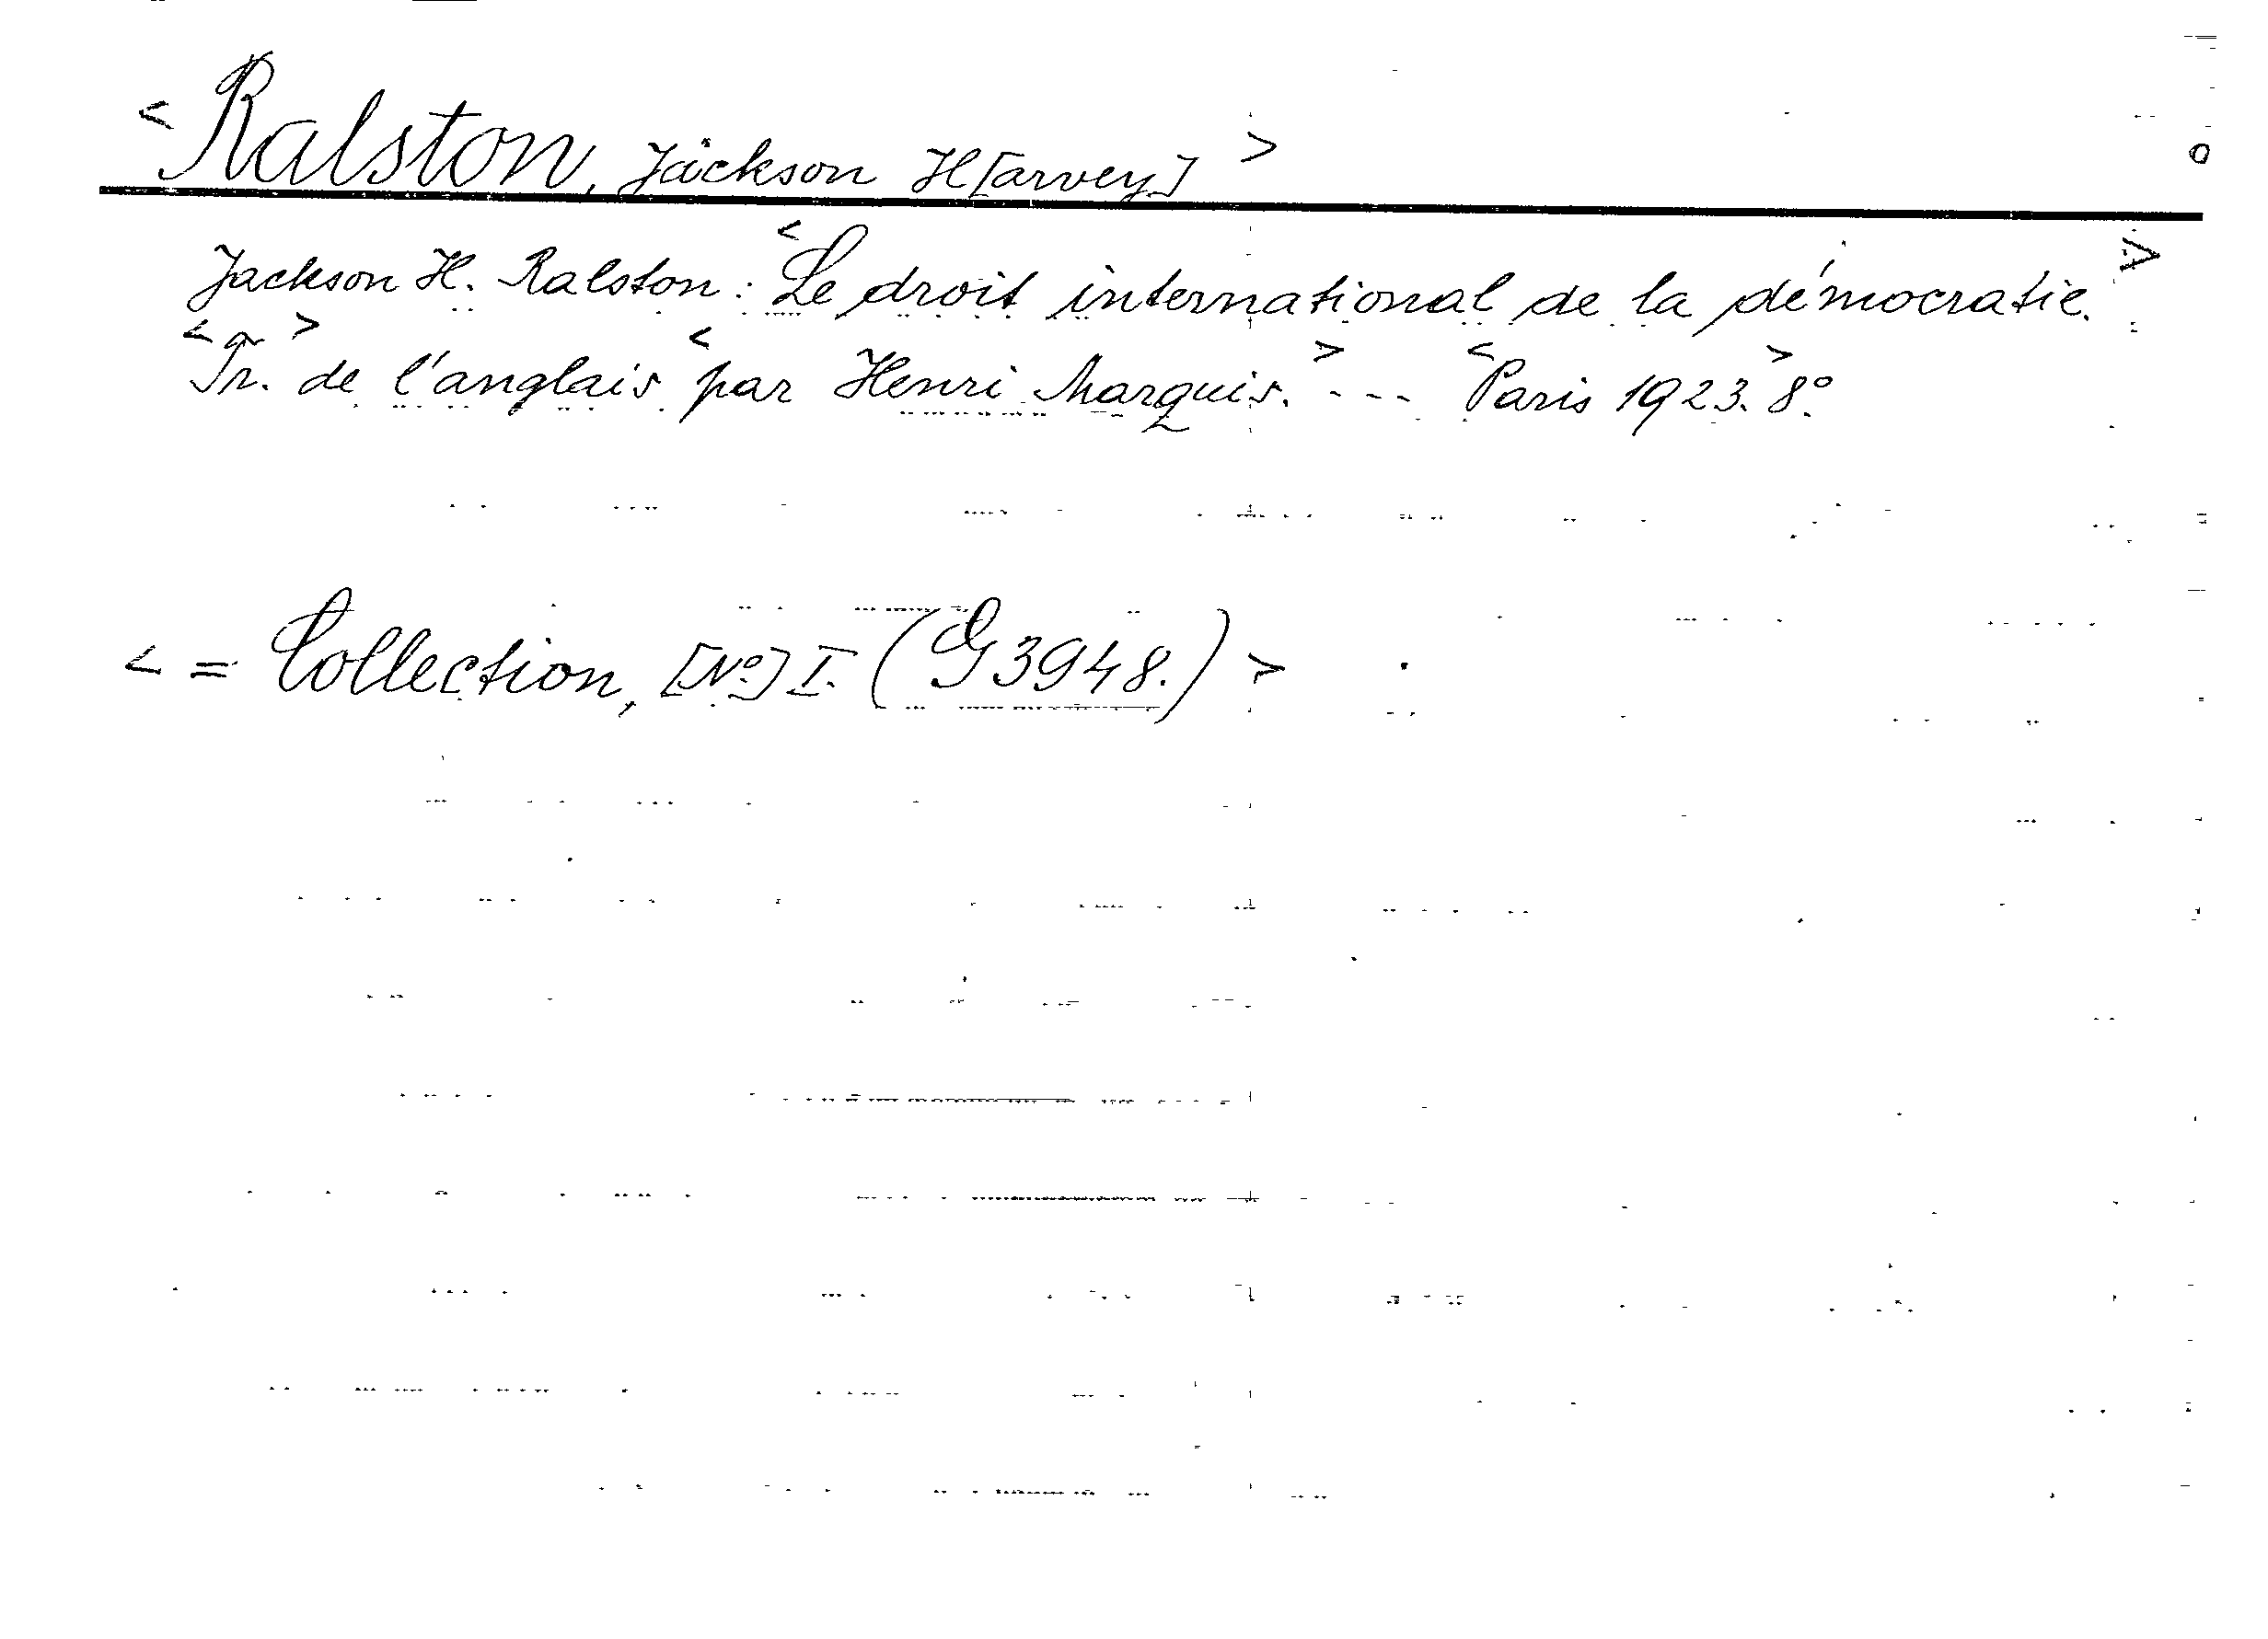 < Ralston, Jackson H[arvey] >
Jackson H. Ralston: <Le droit international de la démocratie.>
<Tr.> de l'anglais <par Henri Marquis.> --- <Paris 1923.> 8.°
< = Collection, [N°] I. (G 3948.) >